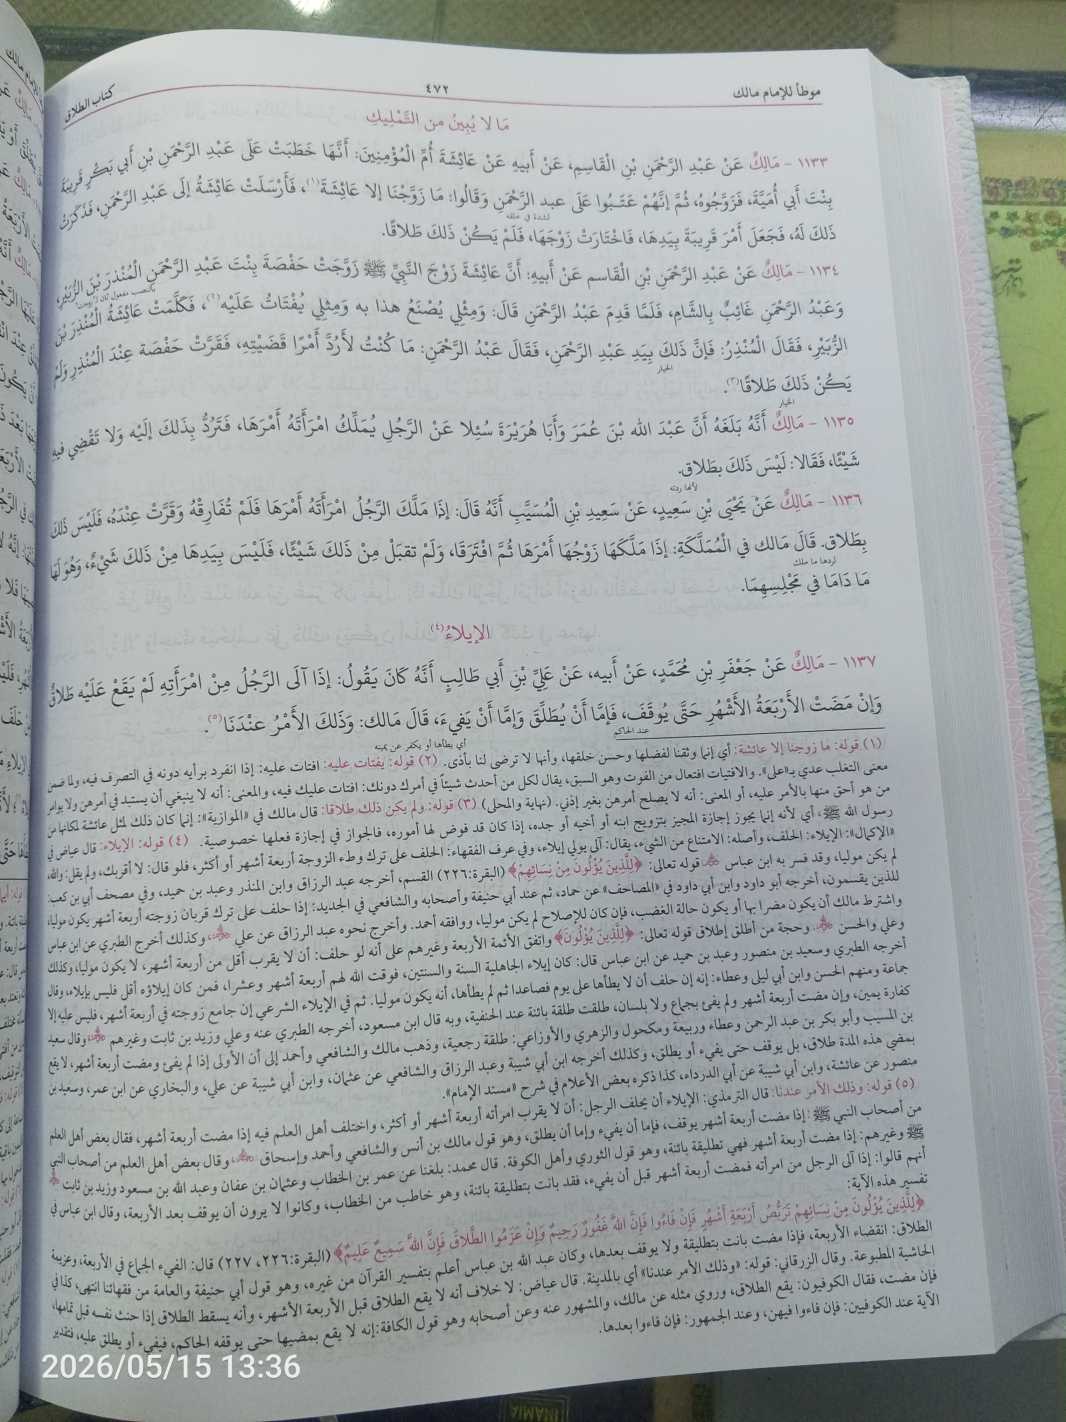 موطأ للإمام مالك
٤٧٢
كتاب الطلاق
مَا لا يُبِينُ من التَّمْلِيكِ
١١٣٣ - مَالِكٌ عَنْ عَبْدِ الرَّحْمَنِ بْنِ الْقَاسِمِ، عَنْ أَبِيهِ عَنْ عَائِشَةَ أُمِّ الْمُؤْمِنِينَ: أَنَّهَا خَطَبَتْ عَلَى عَبْدِ الرَّحْمَنِ بْنِ أَبِي بَكْرٍ قَرِيبَةَ
بِنْتَ أَبِي أُمَيَّةَ، فَزَوَّجُوهُ، ثُمَّ إنَّهُمْ عَتَبُوا عَلَى عبد الرَّحْمَنِ وَقَالُوا: مَا زَوَّجْنَا إلا عَائِشَةَ(١)، فَأَرْسَلَتْ عَائِشَةُ إلَى عَبْدِ الرَّحْمَنِ، فَذَكَرَتْ
ذَلِكَ لَهُ، فَجَعَلَ أَمْرَ قَرِيبَةَ بِيَدِهَا، فَاخْتَارَتْ زَوْجَهَا، فَلَمْ يَكُنْ ذَلكَ طَلاقًا.
١١٣٤ - مَالِكٌ عَنْ عَبْدِ الرَّحْمَنِ بْنِ الْقَاسم عَنْ أَبيهِ: أَنَّ عَائِشَةَ زَوْجَ النَّبِيِّ ﷺ زَوَّجَتْ حَفْصَةَ بِنْتَ عَبْدِ الرَّحْمَنِ الْمُنْذِرَ بْنَ الزُّبَيْرِ،
بالنصب مفعول ثان لـ"زوجت"
وَعَبْدُ الرَّحْمَنِ غَائِبٌ بِالشَّامِ، فَلَمَّا قَدِمَ عَبْدُ الرَّحْمَنِ قَالَ: وَمِثْلِي يُصْنَعُ هذا به وَمِثْلِي يُفْتَاتُ عَلَيْه(٢)، فَكَلَّمَتْ عَائِشَةُ الْمُنْذِرَ بْنَ
الزُّبَيْرِ، فَقَالَ الْمُنْذِرُ: فَإنَّ ذَلكَ بِيَدِ عَبْدِ الرَّحْمَنِ، فَقَالَ عَبْدُ الرَّحْمَنِ: مَا كُنْتُ لأَرُدَّ أَمْرًا قَضَيْتِهِ، فَقَرَّتْ حَفْصَة عِنْدَ الْمُنْذِرِ وَلَمْ
الخيار
يَكُنْ ذَلكَ طَلاقًا(٣).
الخيار
١١٣٥ - مَالِكٌ أَنَّهُ بَلَغَهُ أَنَّ عَبْدَ الله بْنَ عُمَرَ وَأَبَا هُرَيْرَةَ سُئِلا عَنْ الرَّجُلِ يُمَلِّكُ امْرَأَتَهُ أَمْرَهَا، فَتَرُدُّ بِذَلكَ إلَيْه وَلا تَقْضِي فيهِ
شَيْئًا، فَقَالا: لَيْسَ ذَلكَ بطَلاق.
لأنها ردته
١١٣٦ - مَالِكٌ عَنْ يَحْيَى بْنِ سَعِيدٍ، عَنْ سَعِيدِ بْنِ الْمُسَيَّبِ أَنَّهُ قَالَ: إذَا مَلَّكَ الرَّجُلُ امْرَأَتَهُ أَمْرَهَا فَلَمْ تُفَارِقْهُ وَقَرَّتْ عِنْدَهُ، فَلَيْسَ ذَلكَ
بِطَلاق. قَالَ مَالك في الْمُمَلَّكَةِ: إذَا مَلَّكَهَا زَوْجُهَا أَمْرَهَا ثُمَّ افْتَرَقَا، وَلَمْ تَقبَلْ مِنْ ذَلكَ شَيْئًا، فَلَيْسَ بِيَدِهَا مِنْ ذَلكَ شَيْءٌ، وَهُوَ لَهَا
لردها ما ملك
مَا دَامَا في مَجْلِسِهِمَا.
الإيلاءُ(٤)
١١٣٧ - مَالِكٌ عَنْ جَعْفَرِ بْنِ مُحَمَّدٍ، عَنْ أَبيه، عَنْ عَلِيِّ بْنِ أَبي طَالِبٍ أَنَّهُ كَانَ يَقُولُ: إذَا آلَى الرَّجُلُ مِنْ امْرَأَتِهِ لَمْ يَقَعْ عَلَيْه طَلاقٌ
وَإنْ مَضَتْ الأَرْبَعَةُ الأَشْهُرِ حَتَّى يُوقَفَ، فَإمَّا أَنْ يُطَلِّقَ وَإمَّا أَنْ يَفيءَ، قَالَ مَالك: وَذَلكَ الأَمْرُ عنْدَنَا(٥).
عند الحاكم
أي يطأها أو يكفر عن يمينه
(١) قوله: ما زوجنا إلا عائشة: أي إنما وثقنا لفضلها وحسن خلقها، وأنها لا ترضى لنا بأذى. (٢) قوله: يفتات عليه: افتات عليه: إذا انفرد برأيه دونه في التصرف فيه، ولما ضمن
معنى التغلب عدي بـ«على». والافتيات افتعال من الفوت وهو السبق، يقال لكل من أحدث شيئاً في أمرك دونك: افتات عليك فيه، والمعنى: أنه لا ينبغي أن يستبد في أمرهن ولا يؤامر
من هو أحق منها بالأمر عليه، أو المعنى: أنه لا يصلح أمرهن بغير إذني. (نهاية والمحلى) (٣) قوله: ولم يكن ذلك طلاقا: قال مالك في «الموازية»: إنما كان ذلك لمثل عائشة لمكانها من
رسول الله ﷺ، أي لأنه إنما يجوز إجازة المجيز بتزويج ابنه أو أخيه أو جده، إذا كان قد فوض لها أموره، فالجواز في إجازة فعلها خصوصية. (٤) قوله: الإيلاء: قال عياض في
«الإكمال»: الإيلاء: الحلف، وأصله: الامتناع من الشيء، يقال: آلى يولي إيلاء، وفي عرف الفقهاء: الحلف على ترك وطء الزوجة أربعة أشهر أو أكثر، فلو قال: لا أقربك، ولم يقل: والله،
لم يكن موليا، وقد فسر به ابن عباس قوله تعالى: ﴿لِلَّذِينَ يُؤْلُونَ مِنْ نِسَائِهِمْ﴾ (البقرة:٢٢٦) القسم، أخرجه عبد الرزاق وابن المنذر وعبد بن حميد، وفي مصحف أبي بن كعب:
للذين يقسمون، أخرجه أبو داود وابن أبي داود في «المصاحف» عن حماد، ثم عند أبي حنيفة وأصحابه والشافعي في الجديد: إذا حلف على ترك قربان زوجته أربعة أشهر يكون موليا،
واشترط مالك أن يكون مضرا بها أو يكون حالة الغضب، فإن كان للإصلاح لم يكن موليا، ووافقه أحمد. وأخرج نحوه عبد الرزاق عن علي، وكذلك أخرج الطبري عن ابن عباس
وعلي والحسن وحجة من أطلق إطلاق قوله تعالى: ﴿لِلَّذِينَ يُؤْلُونَ﴾ واتفق الأئمة الأربعة وغيرهم على أنه لو حلف: أن لا يقرب أقل من أربعة أشهر، لا يكون موليا، وكذلك
أخرجه الطبري وسعيد بن منصور وعبد بن حميد عن ابن عباس قال: كان إيلاء الجاهلية السنة والسنتين، فوقت الله لهم أربعة أشهر وعشرا، فمن كان إيلاؤه أقل فليس بإيلاء، وقال
جماعة ومنهم الحسن وابن أبي ليلى وعطاء: إنه إن حلف أن لا يطأها على يوم فصاعدا ثم لم يطأها، أنه يكون موليا. ثم في الإيلاء الشرعي إن جامع زوجته في أربعة أشهر، فليس عليه إلا
كفارة يمين، وإن مضت أربعة أشهر ولم يفئ بجماع ولا بلسان، طلقت طلقة بائنة عند الحنفية، وبه قال ابن مسعود، أخرجه الطبري عنه وعلي وزيد بن ثابت وغيرهم وقال سعيد
بن المسيب وأبو بكر بن عبد الرحمن وعطاء وربيعة ومكحول والزهري والأوزاعي: طلقة رجعية، وذهب مالك والشافعي وأحمد إلى أن الأولى إذا لم يفئ ومضت أربعة أشهر، لا يقع
بمضي هذه المدة طلاق، بل يوقف حتى يفيء أو يطلق، وكذلك أخرجه ابن أبي شيبة وعبد الرزاق والشافعي عن عثمان، وابن أبي شيبة عن علي، والبخاري عن ابن عمر، وسعيد بن
منصور عن عائشة، وابن أبي شيبة عن أبي الدرداء، كذا ذكره بعض الأعلام في شرح «مسند الإمام».
(٥) قوله: وذلك الأمر عندنا: قال الترمذي: الإيلاء أن يحلف الرجل: أن لا يقرب امرأته أربعة أشهر أو أكثر، واختلف أهل العلم فيه إذا مضت أربعة أشهر، فقال بعض أهل العلم
من أصحاب النبي ﷺ: إذا مضت أربعة أشهر يوقف، فإما أن يفيء وإما أن يطلق، وهو قول مالك بن أنس والشافعي وأحمد وإسحاق، وقال بعض أهل العلم من أصحاب النبي
ﷺ وغيرهم: إذا مضت أربعة أشهر فهي تطليقة بائنة، وهو قول الثوري وأهل الكوفة. قال محمد: بلغنا عن عمر بن الخطاب وعثمان بن عفان وعبد الله بن مسعود وزيد بن ثابت
أنهم قالوا: إذا آلى الرجل من امرأته فمضت أربعة أشهر قبل أن يفيء، فقد بانت بتطليقة بائنة، وهو خاطب من الخطاب، وكانوا لا يرون أن يوقف بعد الأربعة، وقال ابن عباس في
تفسير هذه الآية:
﴿لِلَّذِينَ يُؤْلُونَ مِنْ نِسَائِهِمْ تَرَبُّصُ أَرْبَعَةِ أَشْهُرٍ فَإِنْ فَاءُوا فَإِنَّ اللَّهَ غَفُورٌ رَحِيمٌ وَإِنْ عَزَمُوا الطَّلَاقَ فَإِنَّ اللَّهَ سَمِيعٌ عَلِيمٌ﴾ (البقرة:٢٢٦، ٢٢٧) قال: الفيء الجماع في الأربعة، وعزيمة
الطلاق: انقضاء الأربعة، فإذا مضت بانت بتطليقة ولا يوقف بعدها، وكان عبد الله بن عباس أعلم بتفسير القرآن من غيره، وهو قول أبي حنيفة والعامة من فقهائنا انتهى، كذا في
الحاشية المطبوعة. وقال الزرقاني: قوله: «وذلك الأمر عندنا» أي بالمدينة. قال عياض: لا خلاف أنه لا يقع الطلاق قبل الأربعة الأشهر، وأنه يسقط الطلاق إذا حنث نفسه قبل تمامها،
فإن مضت، فقال الكوفيون: يقع الطلاق، وروي مثله عن مالك، والمشهور عنه وعن أصحابه وهو قول الكافة: إنه لا يقع بمضيها حتى يوقفه الحاكم، فيفيء أو يطلق عليه، فتقدير
الآية عند الكوفيين: فإن فاءوا فيهن، وعند الجمهور: فإن فاءوا بعدها.
2026/05/15 13:36